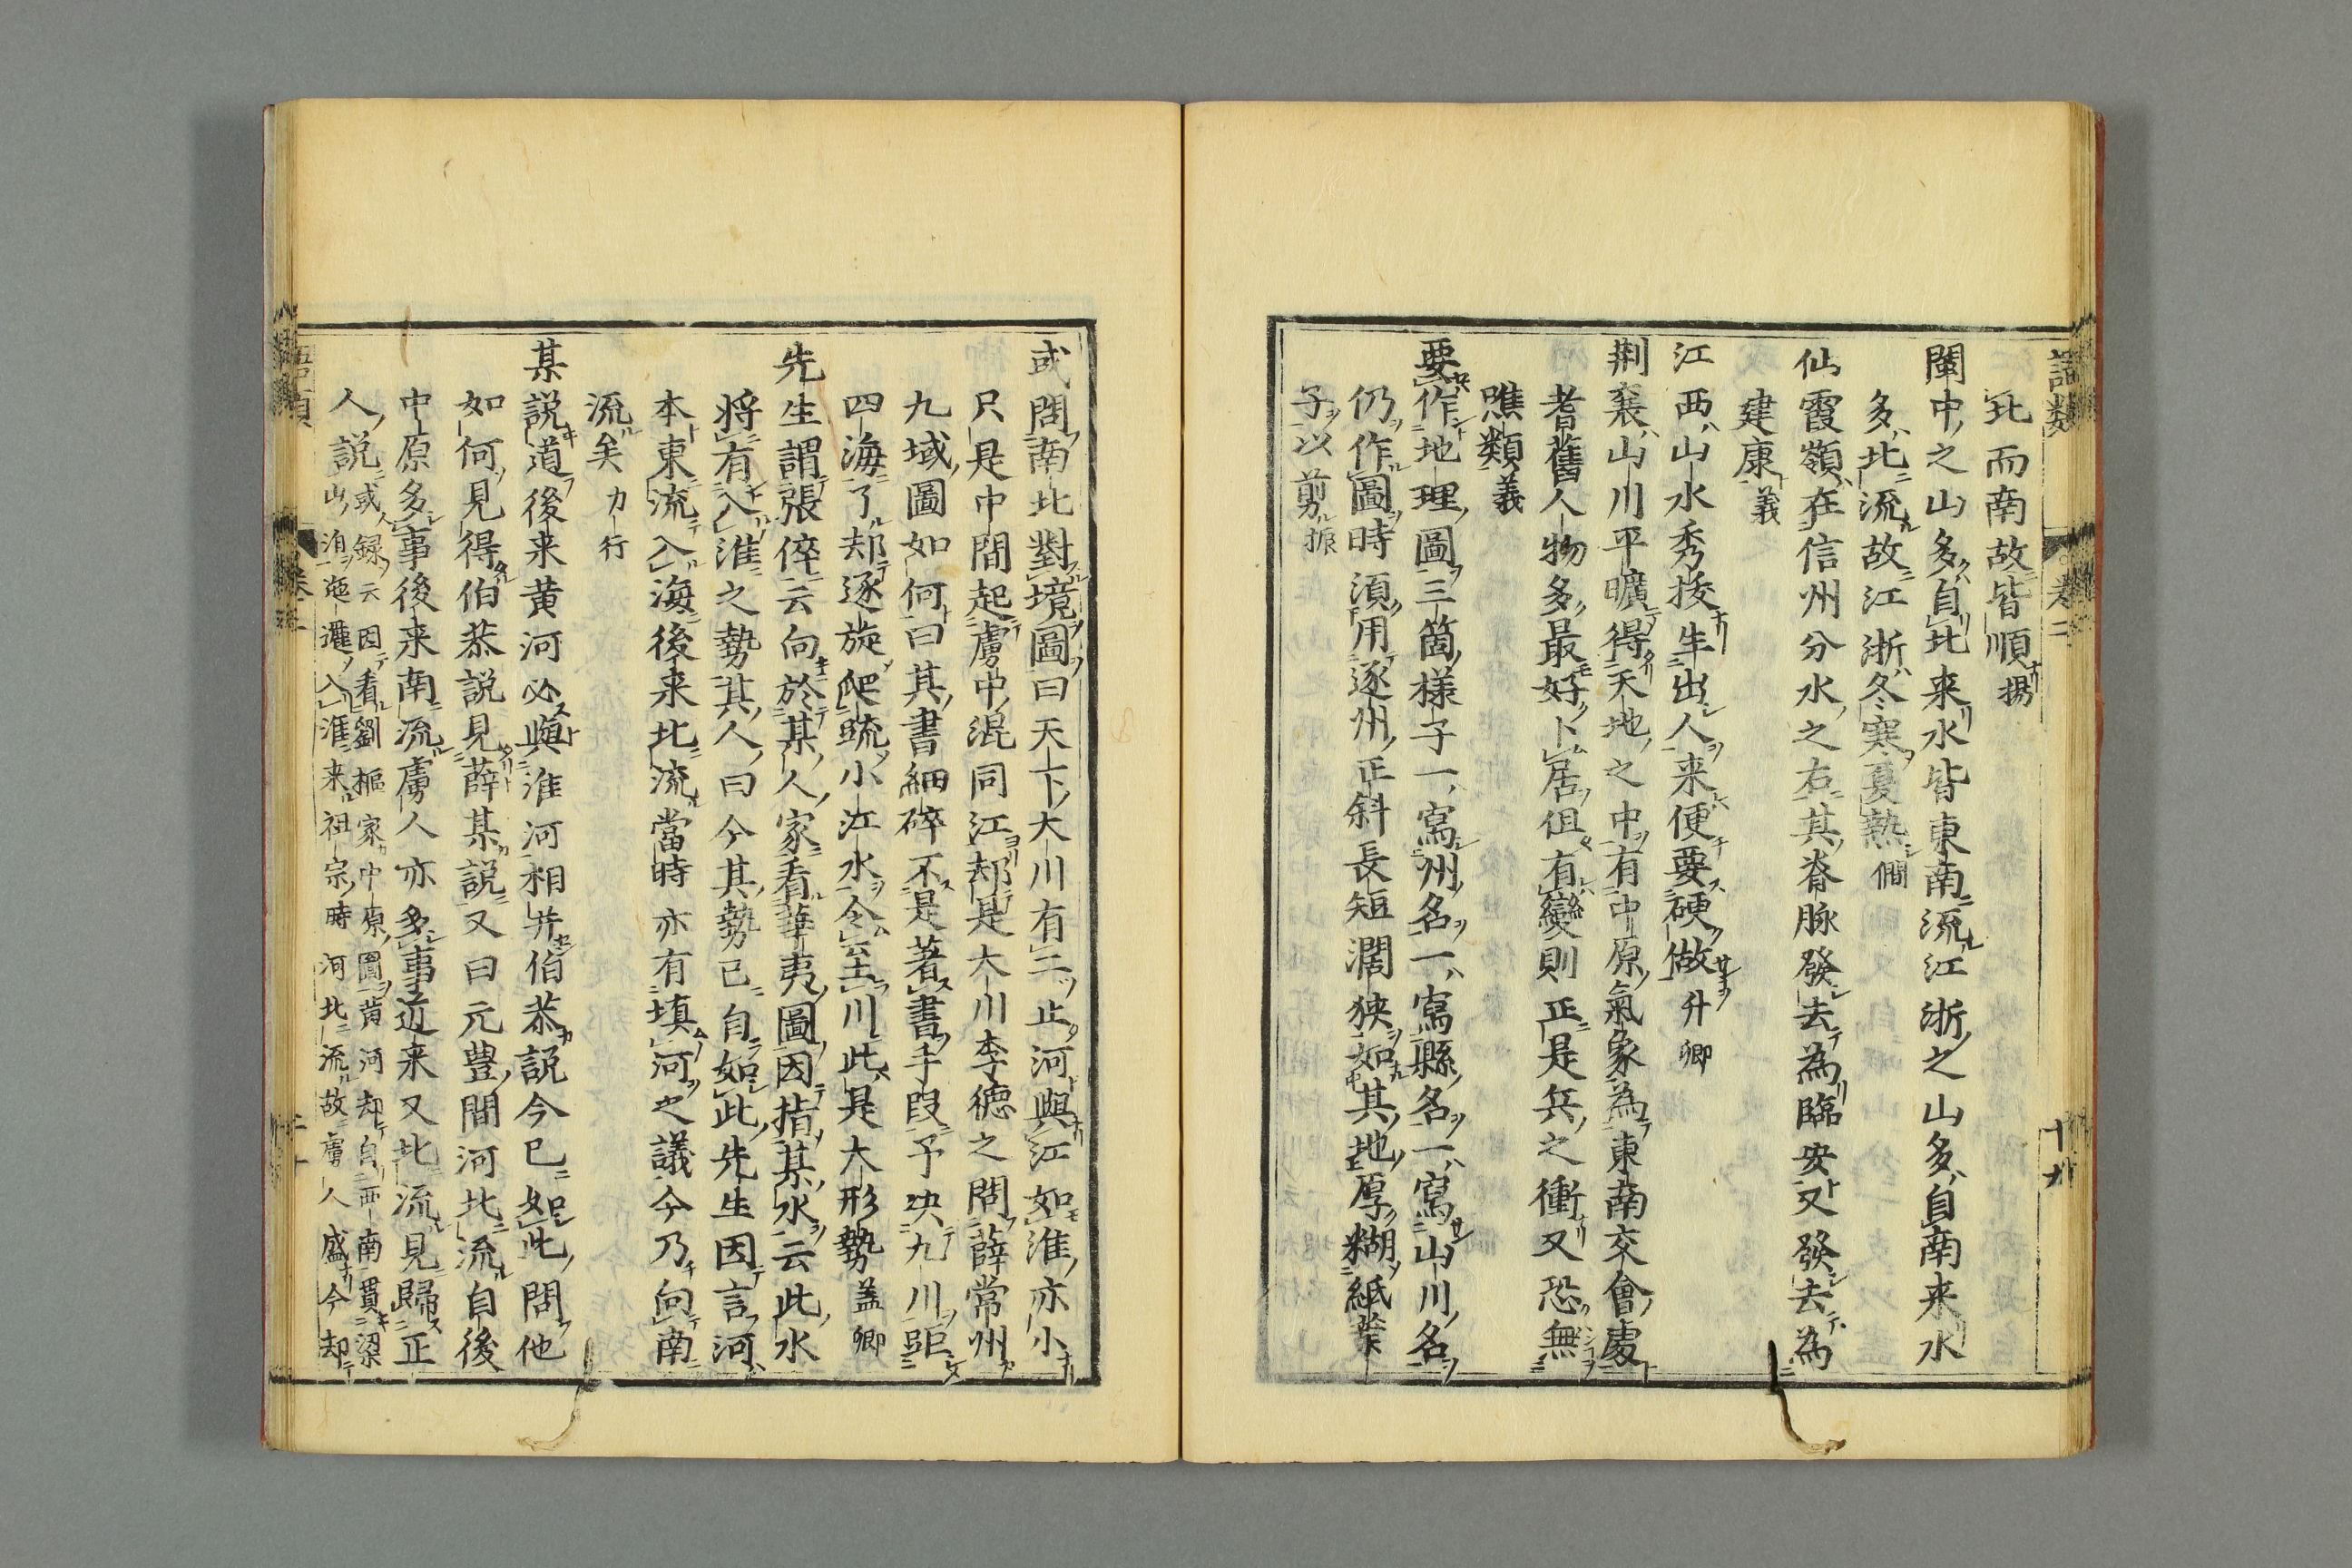 北而南故皆順揚
閩中之山多自北来水皆東南流江浙之山多自南来水
多北流故江浙冬寒夏熱僴
仙霞嶺在信州分水之右其脊脉發去為臨安又發去為
建康義
江西山水秀抜生出人来便要硬做升卿
荆襄山川平曠得天地之中有中原氣象為東南交會處
耆舊人物多最好卜居但有變則正是兵之衝又恐無
噍類義
要作地理圖三箇様子一寫州名一寫縣名一寫山川名
仍作圖時湏用逐州正斜長短濶狭如其地厚糊紙葉
子以剪振
語類 卷二 十九
或問南北對境圖曰天下大川有二止河與江如淮亦小
只是中間起虜中混同江却是大川李徳之問薛常州
九域圖如何曰其書細碎不是著書手段予决九川距
四海了却逐旋爬疏小江水令至川此是大形勢盖卿
先生謂張倅云向於某人家看華夷圖因指某水云此水
将有入淮之勢其人曰今其勢已自如此先生因言河
本東流入海後来北流當時亦有填河之議今乃向南
流矣力行
某説道後来黄河必與淮河相并伯恭説今已如此問他
如何見得伯恭説見薛某説又曰元豊間河北流自後
中原多事後来南流虜人亦多事近来又北流見歸正
人説或録云因看劉樞家中原圖黄河却自西南貫梁
山泊迤邐入淮来祖宗時河北流故虜人盛今却
語類 卷二